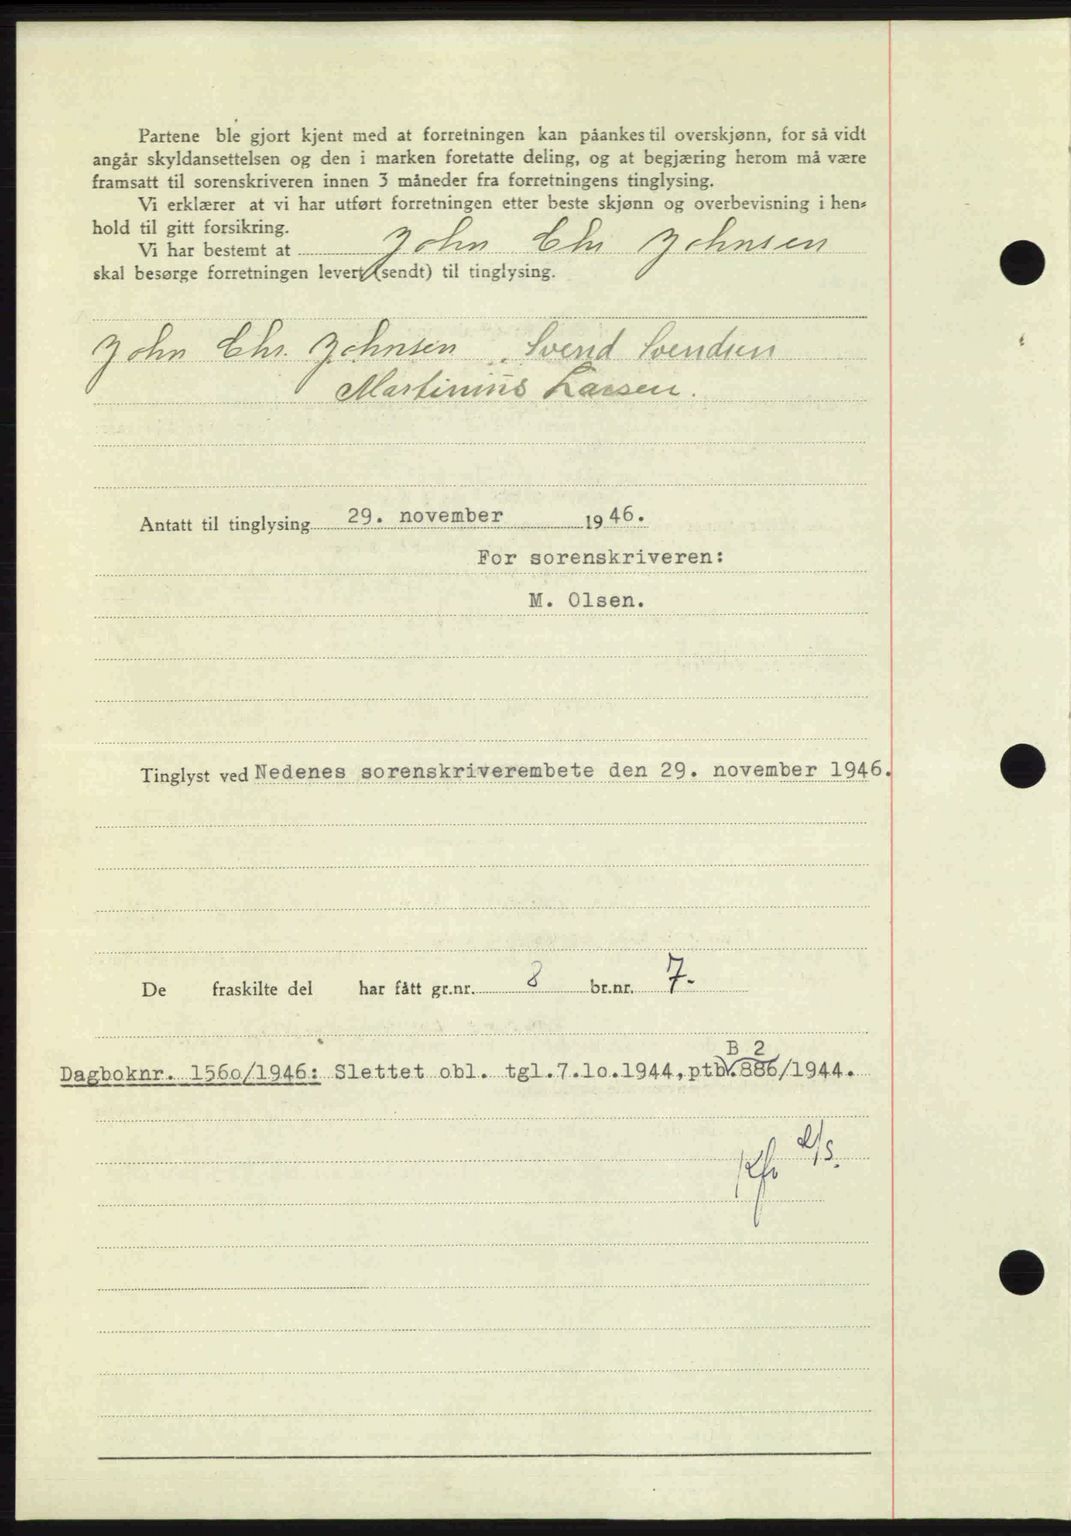 Partene ble gjort kjent med at forretningen kan påankes til overskjønn, for så vidt
angår skyldansettelsen og den i marken foretatte deling, og at begjæring herom må være
framsatt til sorenskriveren innen 3 måneder fra forretningens tinglysing.
Vi erklærer at vi har utført forretningen etter beste skjønn og overbevisning i hen-
hold til gitt forsikring.
Vi har bestemt at John Chr Johnsen
skal besørge forretningen levert (sendt) til tinglysing.
John Chr. Johnsen, Svend Svendsen
Martinius Larsen.
Antatt til tinglysing 29. november 1946.
For sorenskriveren:
M. Olsen.
Tinglyst ved Nedenes sorenskriverembete den 29. november 1946.
De fraskilte del har fått gr.nr. 8 br.nr. 7-
B 2
Dagboknr. 156o/1946: Slettet obl. tgl.7.1o.1944, ptb.886/1944.